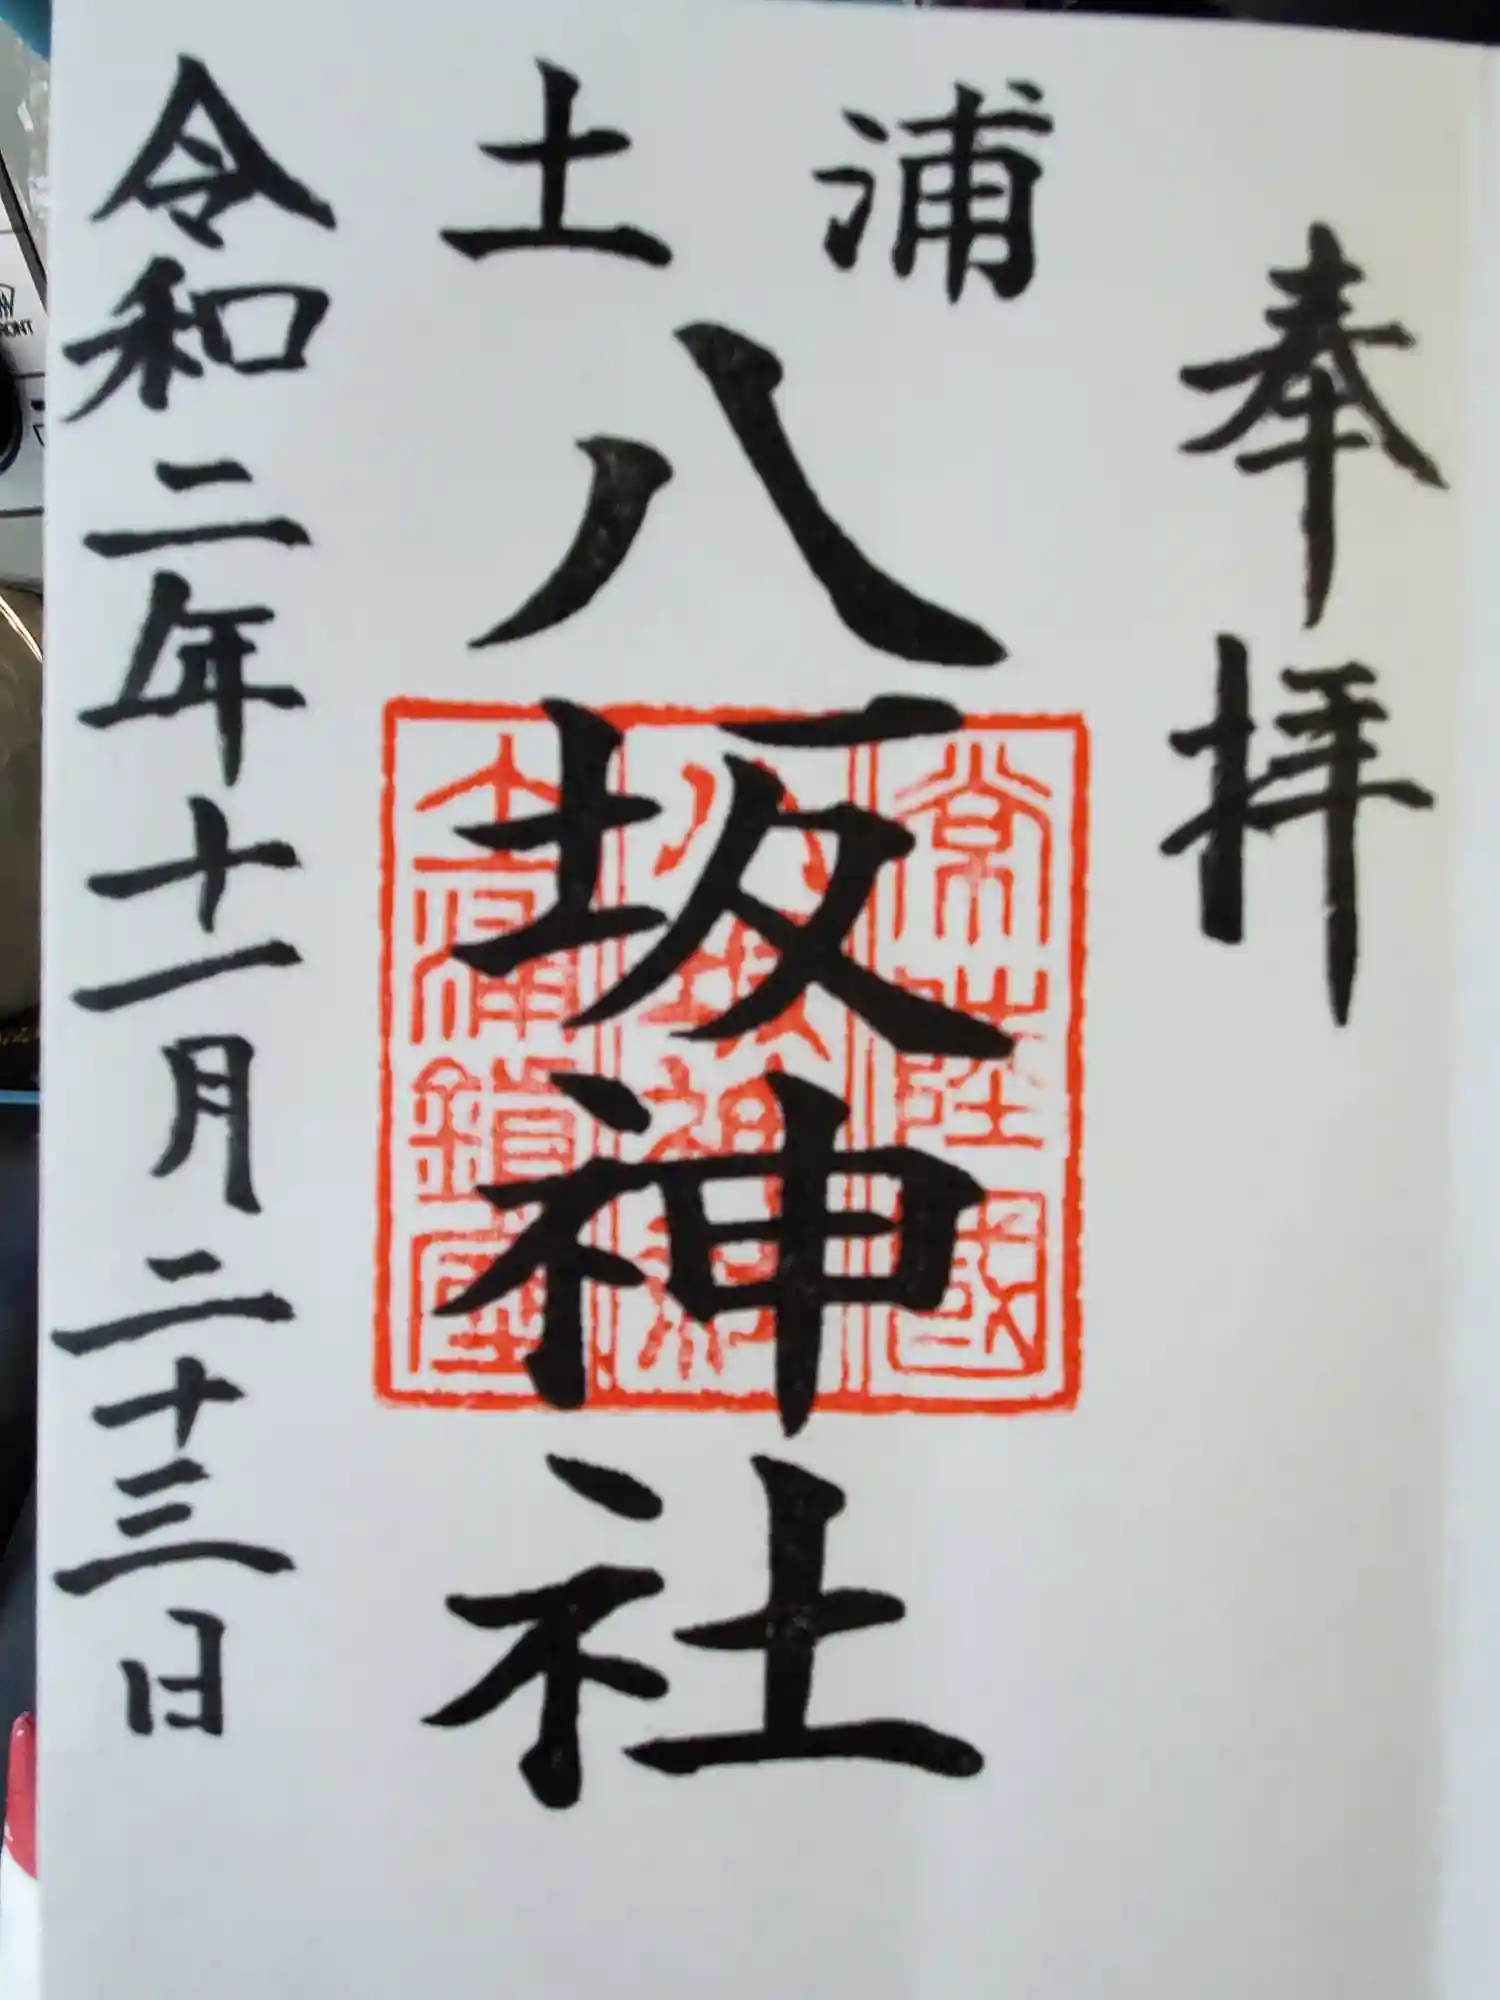 奉拝
土浦
八坂神社
常陸國
八坂神社
土浦鎮座
令和二年十一月二十三日